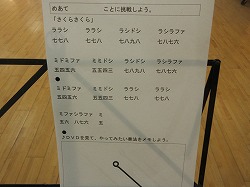 めあて　ことに挑戦しよう。
「さくらさくら」
ララシ　ララシ　ラシドシ　ラシラファ
七七八　七七八　七八九八　七八七六
ミドミファ　ミミドシ　ラシドシ　ラシラファ
五四五六　五五四三　七八九八　七八七六
●
ミドミファ　ミミドシ　ララシ　ララシ
五四五六　五五四三　七七八　七七八
ミファシラファ　ミ
五六　八七六　五
●
♪DVDを見て、やってみたい奏法をメモしよう。